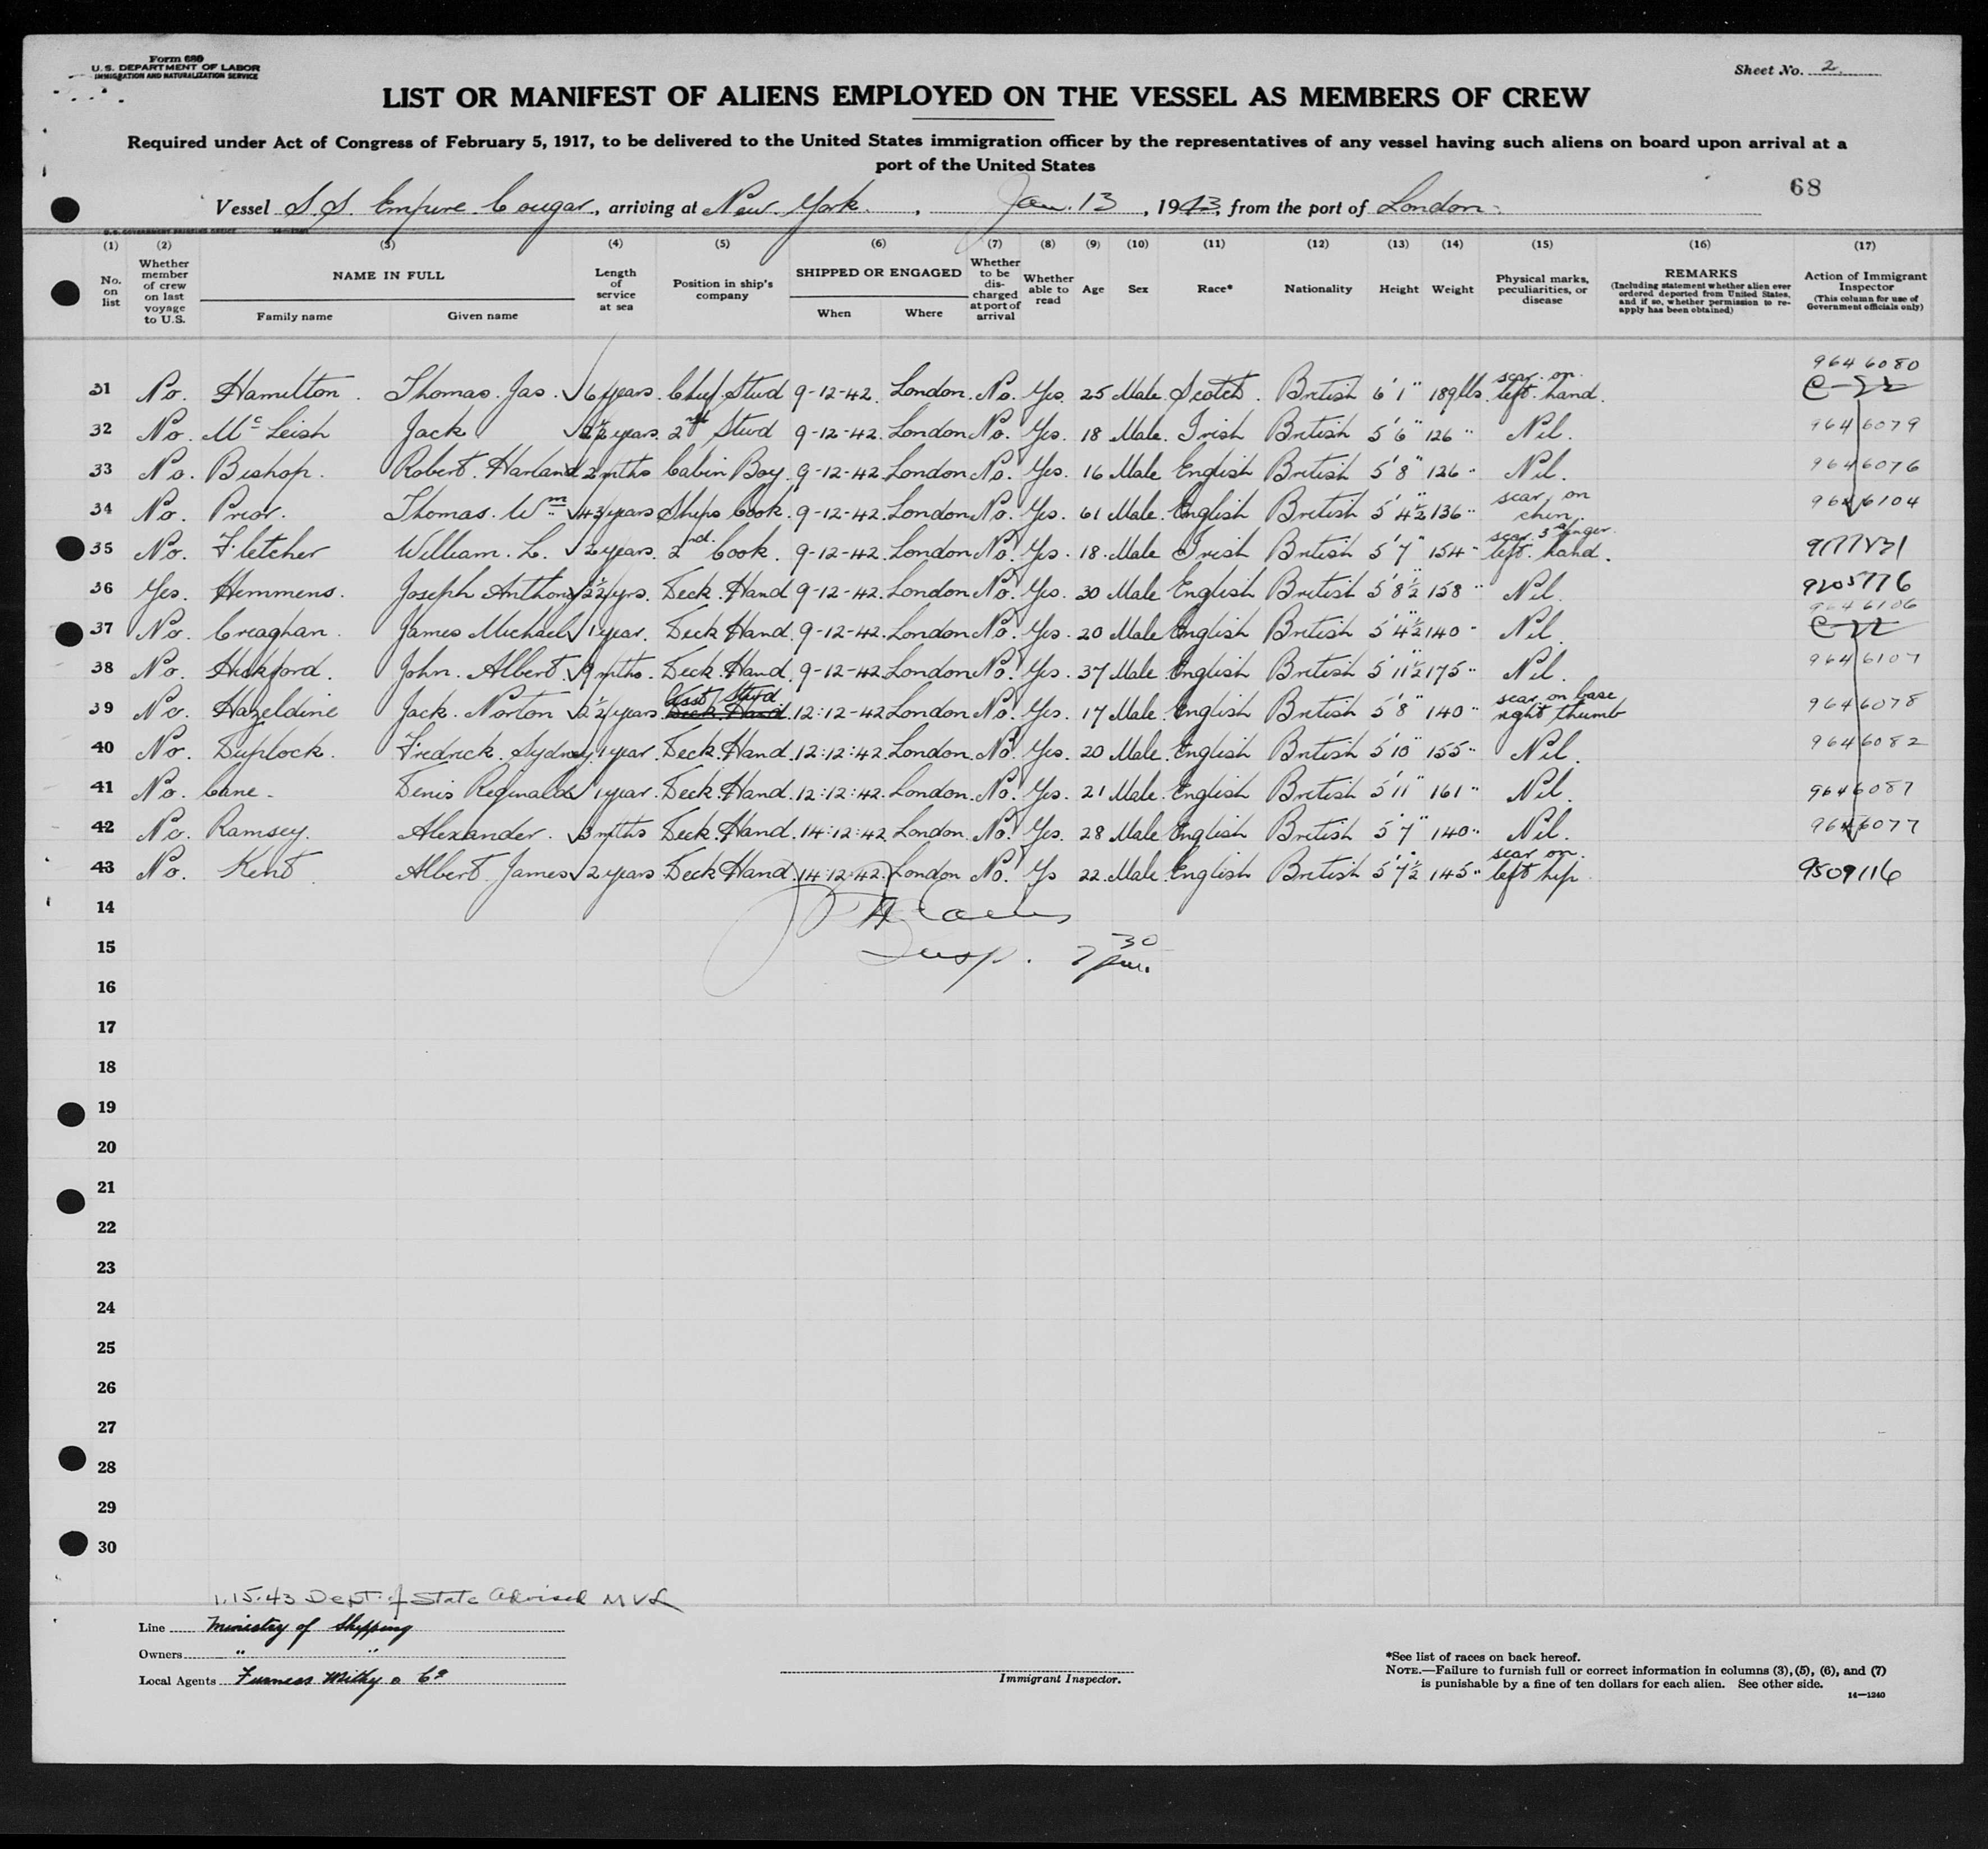 Form 680
U. S. DEPARTMENT OF LABOR
IMMIGRATION AND NATURALIZATION SERVICE
Sheet No. 2
LIST OR MANIFEST OF ALIENS EMPLOYED ON THE VESSEL AS MEMBERS OF CREW
Required under Act of Congress of February 5, 1917, to be delivered to the United States immigration officer by the representatives of any vessel having such aliens on board upon arrival at a
port of the United States
68
Vessel S.S. Empire Cougar, arriving at New York, Jan. 13, 1943, from the port of London
(1) (2) (3) (4) (5) (6) (7) (8) (9) (10) (11) (12) (13) (14) (15) (16) (17)
No. on list
Whether member of crew on last voyage to U.S.
NAME IN FULL
Family name Given name
Length of service at sea
Position in ship's company
SHIPPED OR ENGAGED
When Where
Whether to be discharged at port of arrival
Whether able to read
Age
Sex
Race*
Nationality
Height
Weight
Physical marks, peculiarities, or disease
REMARKS
(Including statement whether alien ever ordered deported from United States, and if so, whether permission to re-apply has been obtained)
Action of Immigrant Inspector
(This column for use of Government officials only)
31 No. Hamilton. Thomas. Jas. 6 years. Chief Stwd 9-12-42. London. No. Yes. 25 Male. Scotch. British 6' 1" 189 lbs. scar on left hand. 9646080
32 No. McLeish Jack 2½ years. 2nd Stwd 9-12-42. London No. Yes. 18 Male. Irish British 5' 6" 126 " Nil. 9646079
33 No. Bishop. Robert. Harland 2 mths Cabin Boy. 9-12-42. London No. Yes. 16 Male English British 5' 8" 126 " Nil. 9646076
34 No. Prior. Thomas. Wm 43 years Ships Cook. 9-12-42. London No. Yes. 61 Male. English British 5' 4½" 136 " scar on chin. 9646104
35 No. Fletcher William. L. 2 years. 2nd Cook. 9-12-42. London No. Yes. 18. Male Irish British 5' 7" 154 " scar 5 finger left hand.
36 Yes. Hemmens. Joseph Anthony 2½ yrs. Deck. Hand 9-12-42. London No. Yes. 30 Male English British 5' 8½" 158 " Nil. 9205776
37 No. Creaghan. James Michael 1 year. Deck Hand. 9-12-42. London No. Yes. 20 Male English British 5' 4½" 140 " Nil. 9646106
38 No. Hickford. John. Albert. 9 mths. Deck. Hand. 9-12-42. London No. Yes. 37 Male. English British 5' 11½" 175 " Nil. 9646107
39 No. Hazeldine Jack. Norton 2½ years Asst Stwd Deck Hand. 12:12-42 London No. Yes. 17 Male. English British 5' 8" 140 " scar on base right thumb 9646078
40 No. Duplock. Fredrick. Sydney. 1 year. Deck. Hand. 12:12:42. London. No. Yes. 20 Male. English British 5' 10" 155 " Nil. 9646082
41 No. Cane. Denis Reginald 1 year. Deck. Hand. 12:12:42. London. No. Yes. 21 Male. English British 5' 11" 161 " Nil. 9646087
42 No. Ramsey. Alexander. 3 mths Deck. Hand. 14:12:42. London. No. Yes. 28 Male English British 5' 7" 140 " Nil. 9646077
43 No. Kent. Albert. James 2 years Deck Hand. 14:12:42. London No. Ys 22. Male. English British 5' 7½" 145 " scar on left hip. 9509116
14
15 Insp. 7 30 pm.
16
17
18
19
20
21
22
23
24
25
26
27
28
29
30
1.15.43 Dept. of State Advised MVL
Line Ministry of Shipping
Owners " "
Local Agents Furness Withy & Co
Immigrant Inspector.
*See list of races on back hereof.
NOTE.—Failure to furnish full or correct information in columns (3), (5), (6), and (7)
is punishable by a fine of ten dollars for each alien. See other side.
14—1240